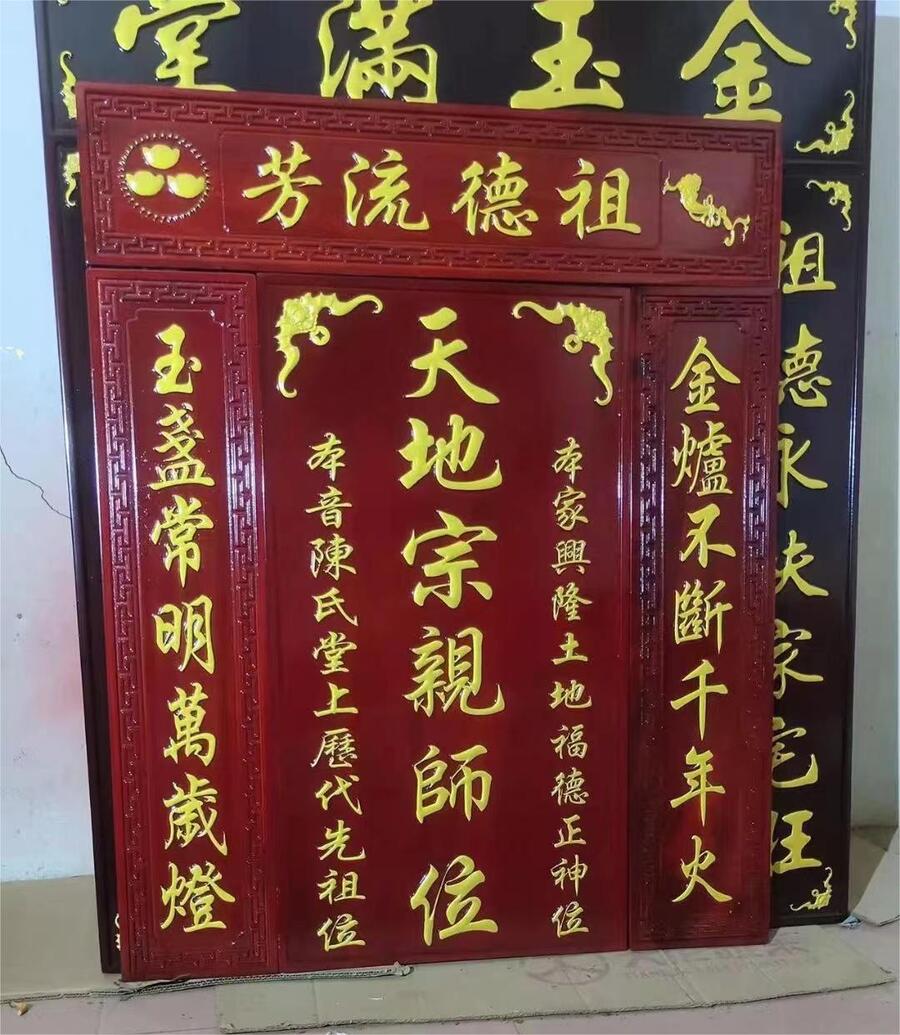 金玉滿堂
祖德流芳
金爐不斷千年火
本家興隆土地福德正神位
天地宗親師位
本音陳氏堂上歷代先祖位
玉盞常明萬歲燈
祖德永扶家宅旺